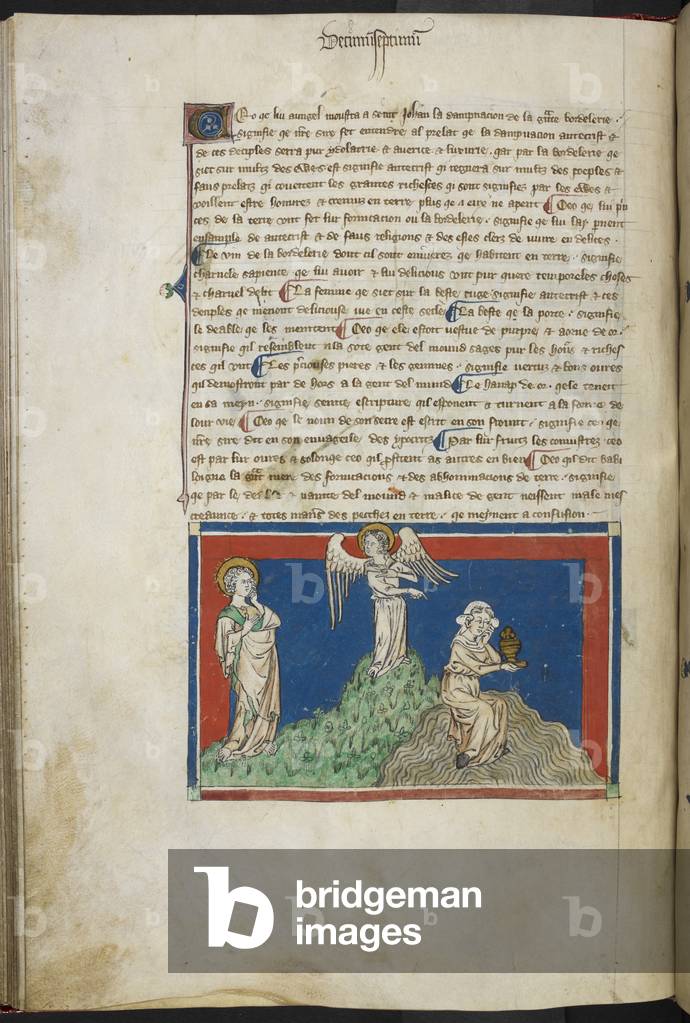 Decimuseptimum
Ceo qe lui aungel moustra a seint Johan la dampnacion de la bordelerie
signifie qe sire fet entendre al prelat qe la dampnacion antecrist &
de ces deciples serra pur ydolatrie & auerice & luxurie. qar par la bordelerie qe
siet sur multz des ewes est signifie antecrist qi regnera sur multz des poeples &
faus prelatz qi coueitent les grantes richesces qi sont signifies par les ewes &
voillent estre honurez & en terre plus qe a Ceo qe
ces de la terre ount fet lur fornicacion ou la bordelerie. signifie qe
ensample de antecrist & de faus religions & des clers de viure en delices.
Le vin de la bordelerie dont cil sont qe habitent en terre. signifie
charnele sapience qe lui auoir & au delicious vont pur quere temporeles choses
& charnel La femme qe siet sur la beste signifie antecrist & ces
deciples qe menont deliciouse vie en ceste secle La beste qe la porte. signifie
le deable qe les meintent Ceo qe ele estoit vestue de purpre & de or.
signifie qil resemblent a la sote gent del mound sages pur les &
ces qil ount Les pieres & les gemmes. signifie vertuz & bons oures
qil demostront par de hors a la gent del mund Le hanap de or. qele tenoit
en sa meyn. signifie seinte escripture qil esponent & turnent a la de
lour vie Ceo qe le noun de est escrit en son frount. signifie ceo qe
sire dit en son euuangeile des ypocritz Par lur fruitz les conustrez ceo
est par lur oures & solonqe ceo qil as autres en bien Ceo qil dit babi
loigne la mere des fornicacions & des abhominacions de terre. signifie
qe par le & vanite del mound & malice de gent neissent male mes
creaunce. & totes des pecchez en terre. qe meynent a confusion.
b
bridgeman
images